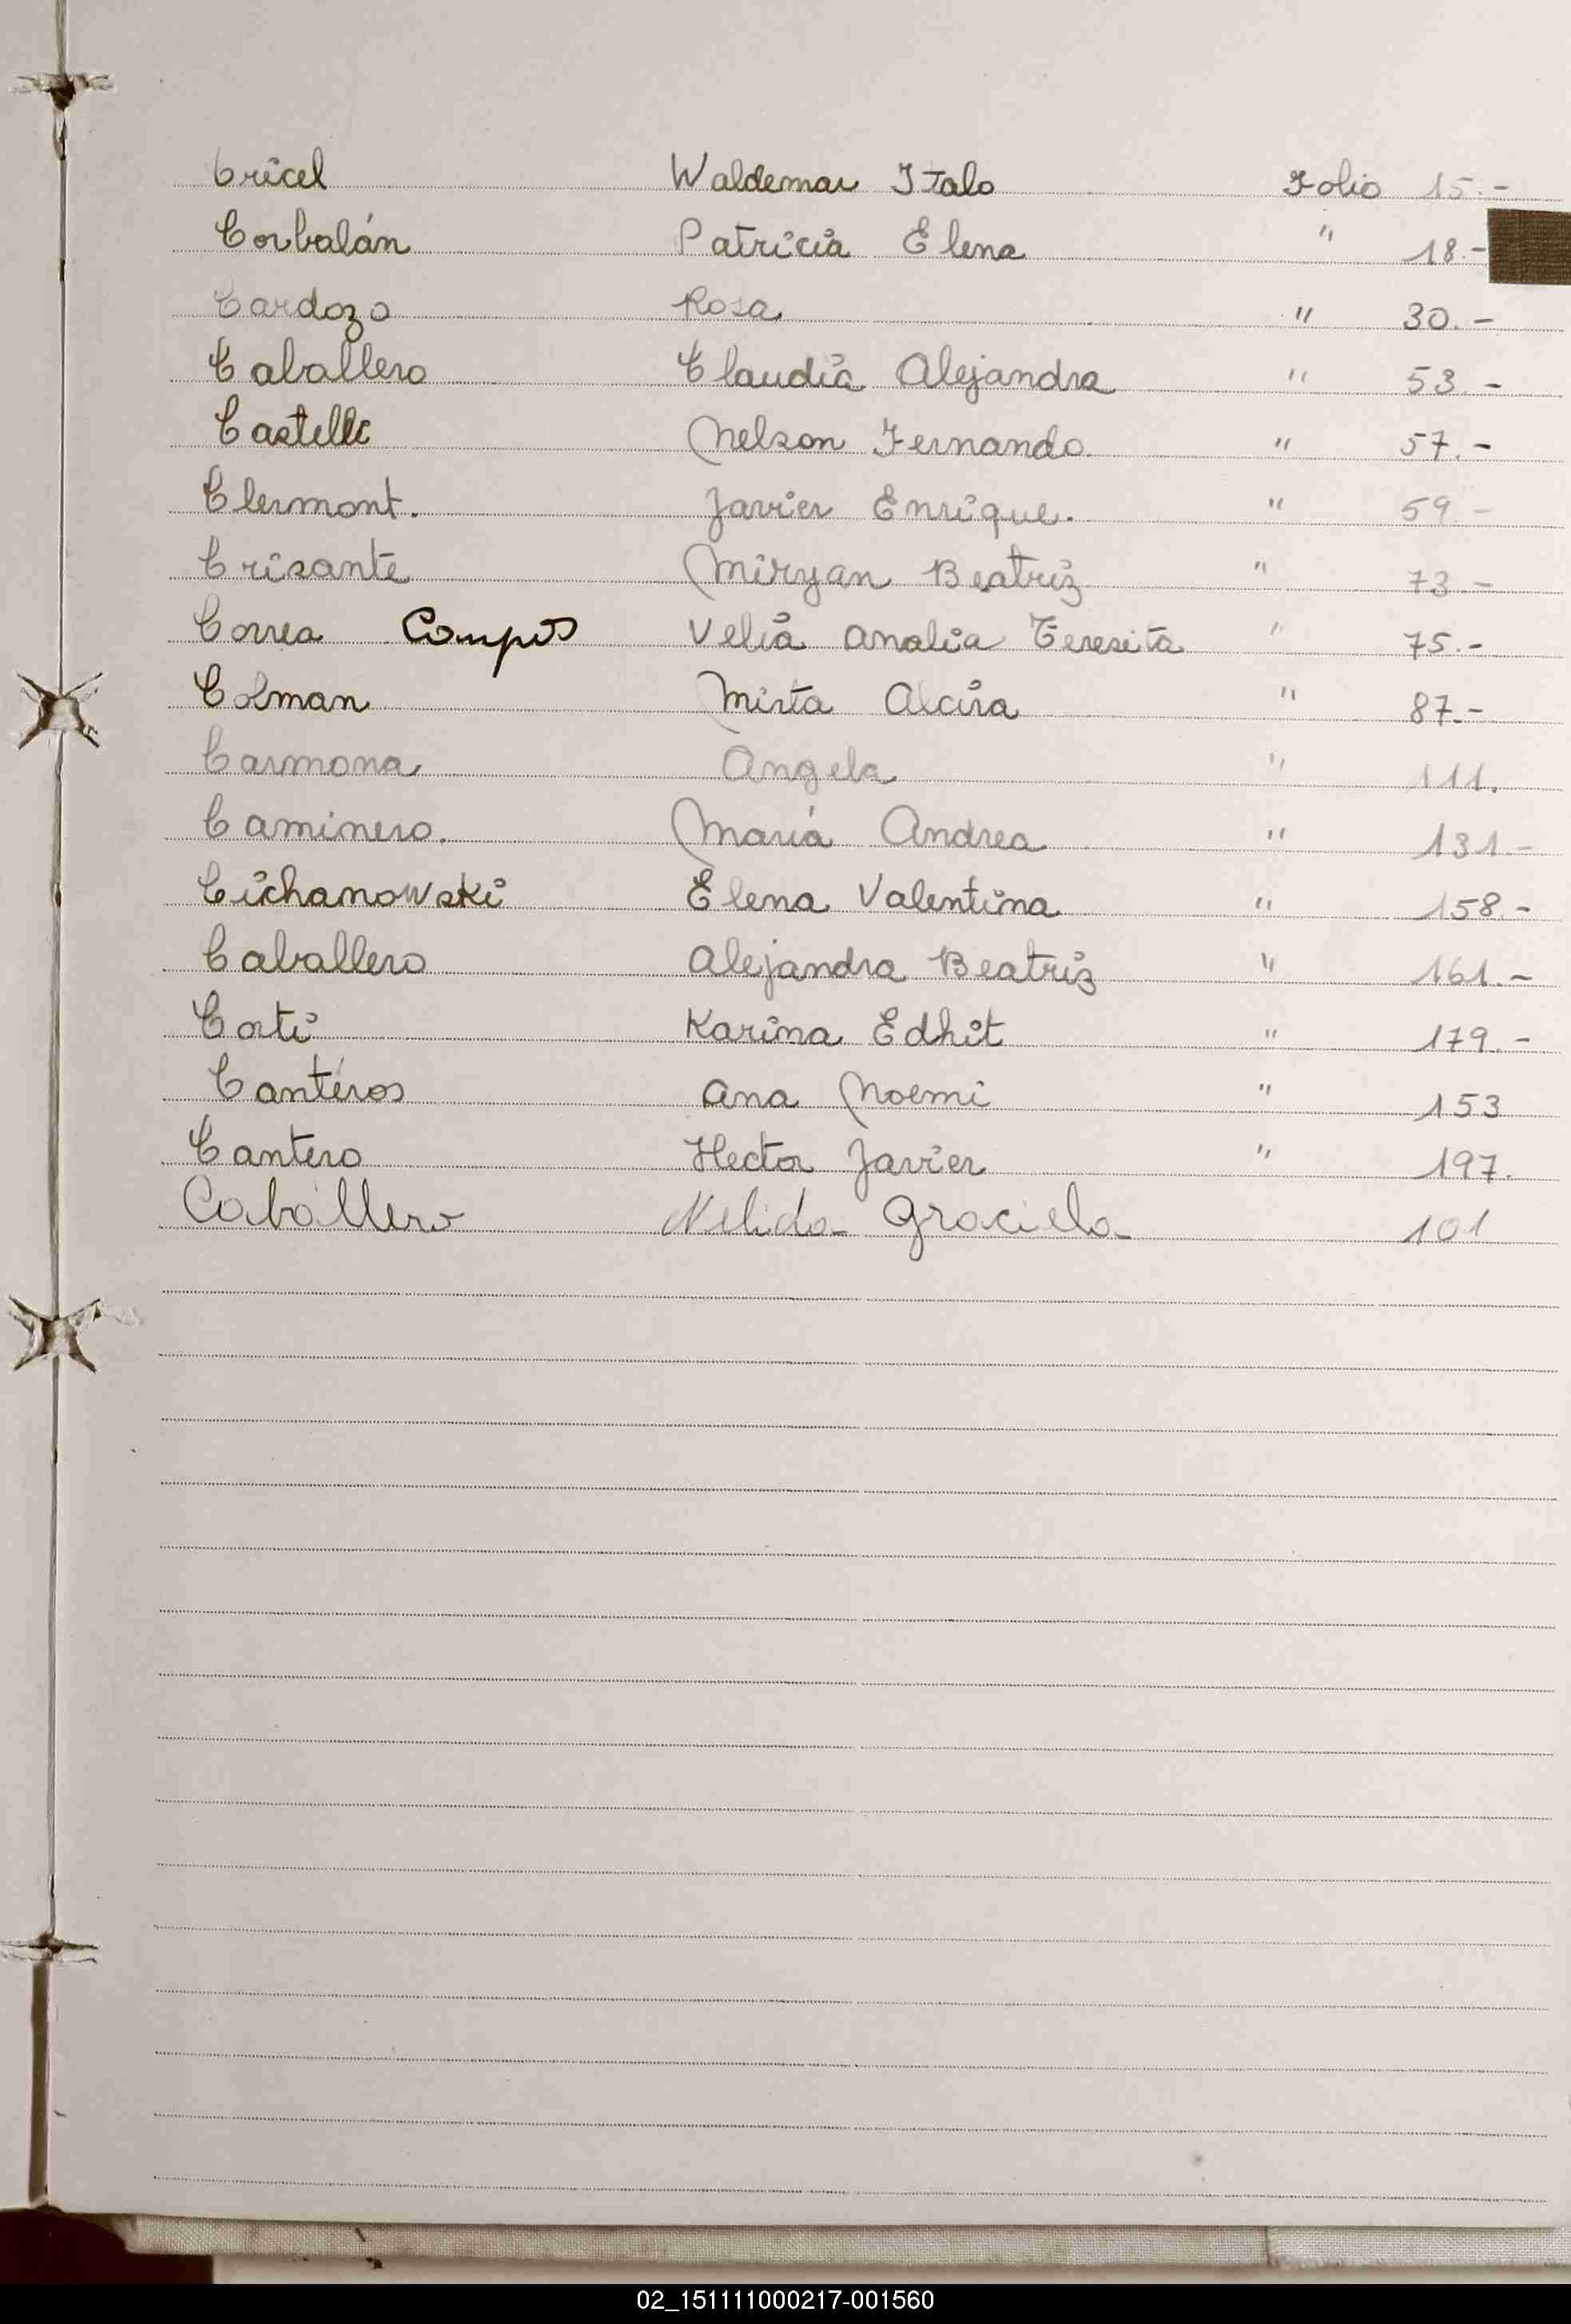 Cricel Waldemar Italo Folio 15.-
Corbalán Patricia Elena " 18.-
Cardozo Rosa " 30.-
Caballero Claudia Alejandra " 53.-
Castelli Nelson Fernando " 57.-
Clermont. Javier Enrique. " 59.-
Crisante Miryan Beatriz " 73.-
Correa Campos Velia Analia Teresita " 75.-
Colman Mirta Alcira " 87.-
Carmona Angela " 111.
Caminero. María Andrea " 131.-
Cichanowski Elena Valentina " 158.-
Caballero Alejandra Beatriz " 161.-
Corti Karina Edhit " 179.-
Canteros Ana Noemi " 153
Cantero Hector Javier " 197.
Caballero Nelida- Graciela- 101
02_151111000217-001560